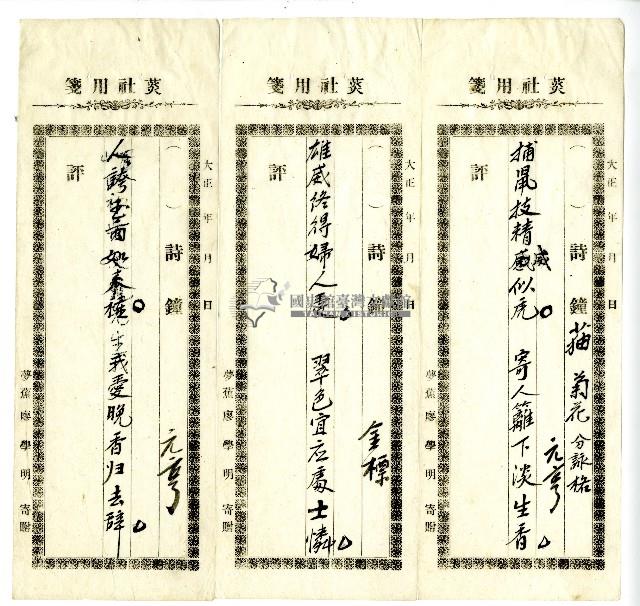 菼社用箋
大正 年 月 日
( )詩鐘 猫 菊花 分詠格
元亨
捕鼠技精威似虎 寄人籬下淡生香
評
夢蕉廖學明寄贈
菼社用箋
大正 年 月 日
( )詩鐘
金標
雄威終得婦人 翠色宜應處士憐
評
夢蕉廖學明寄贈
菼社用箋
大正 年 月 日
( )詩鐘
元亨
人 面如 我愛晚香归去辞
評
夢蕉廖學明寄贈
國史館臺灣文獻館
TAIWAN HISTORICA